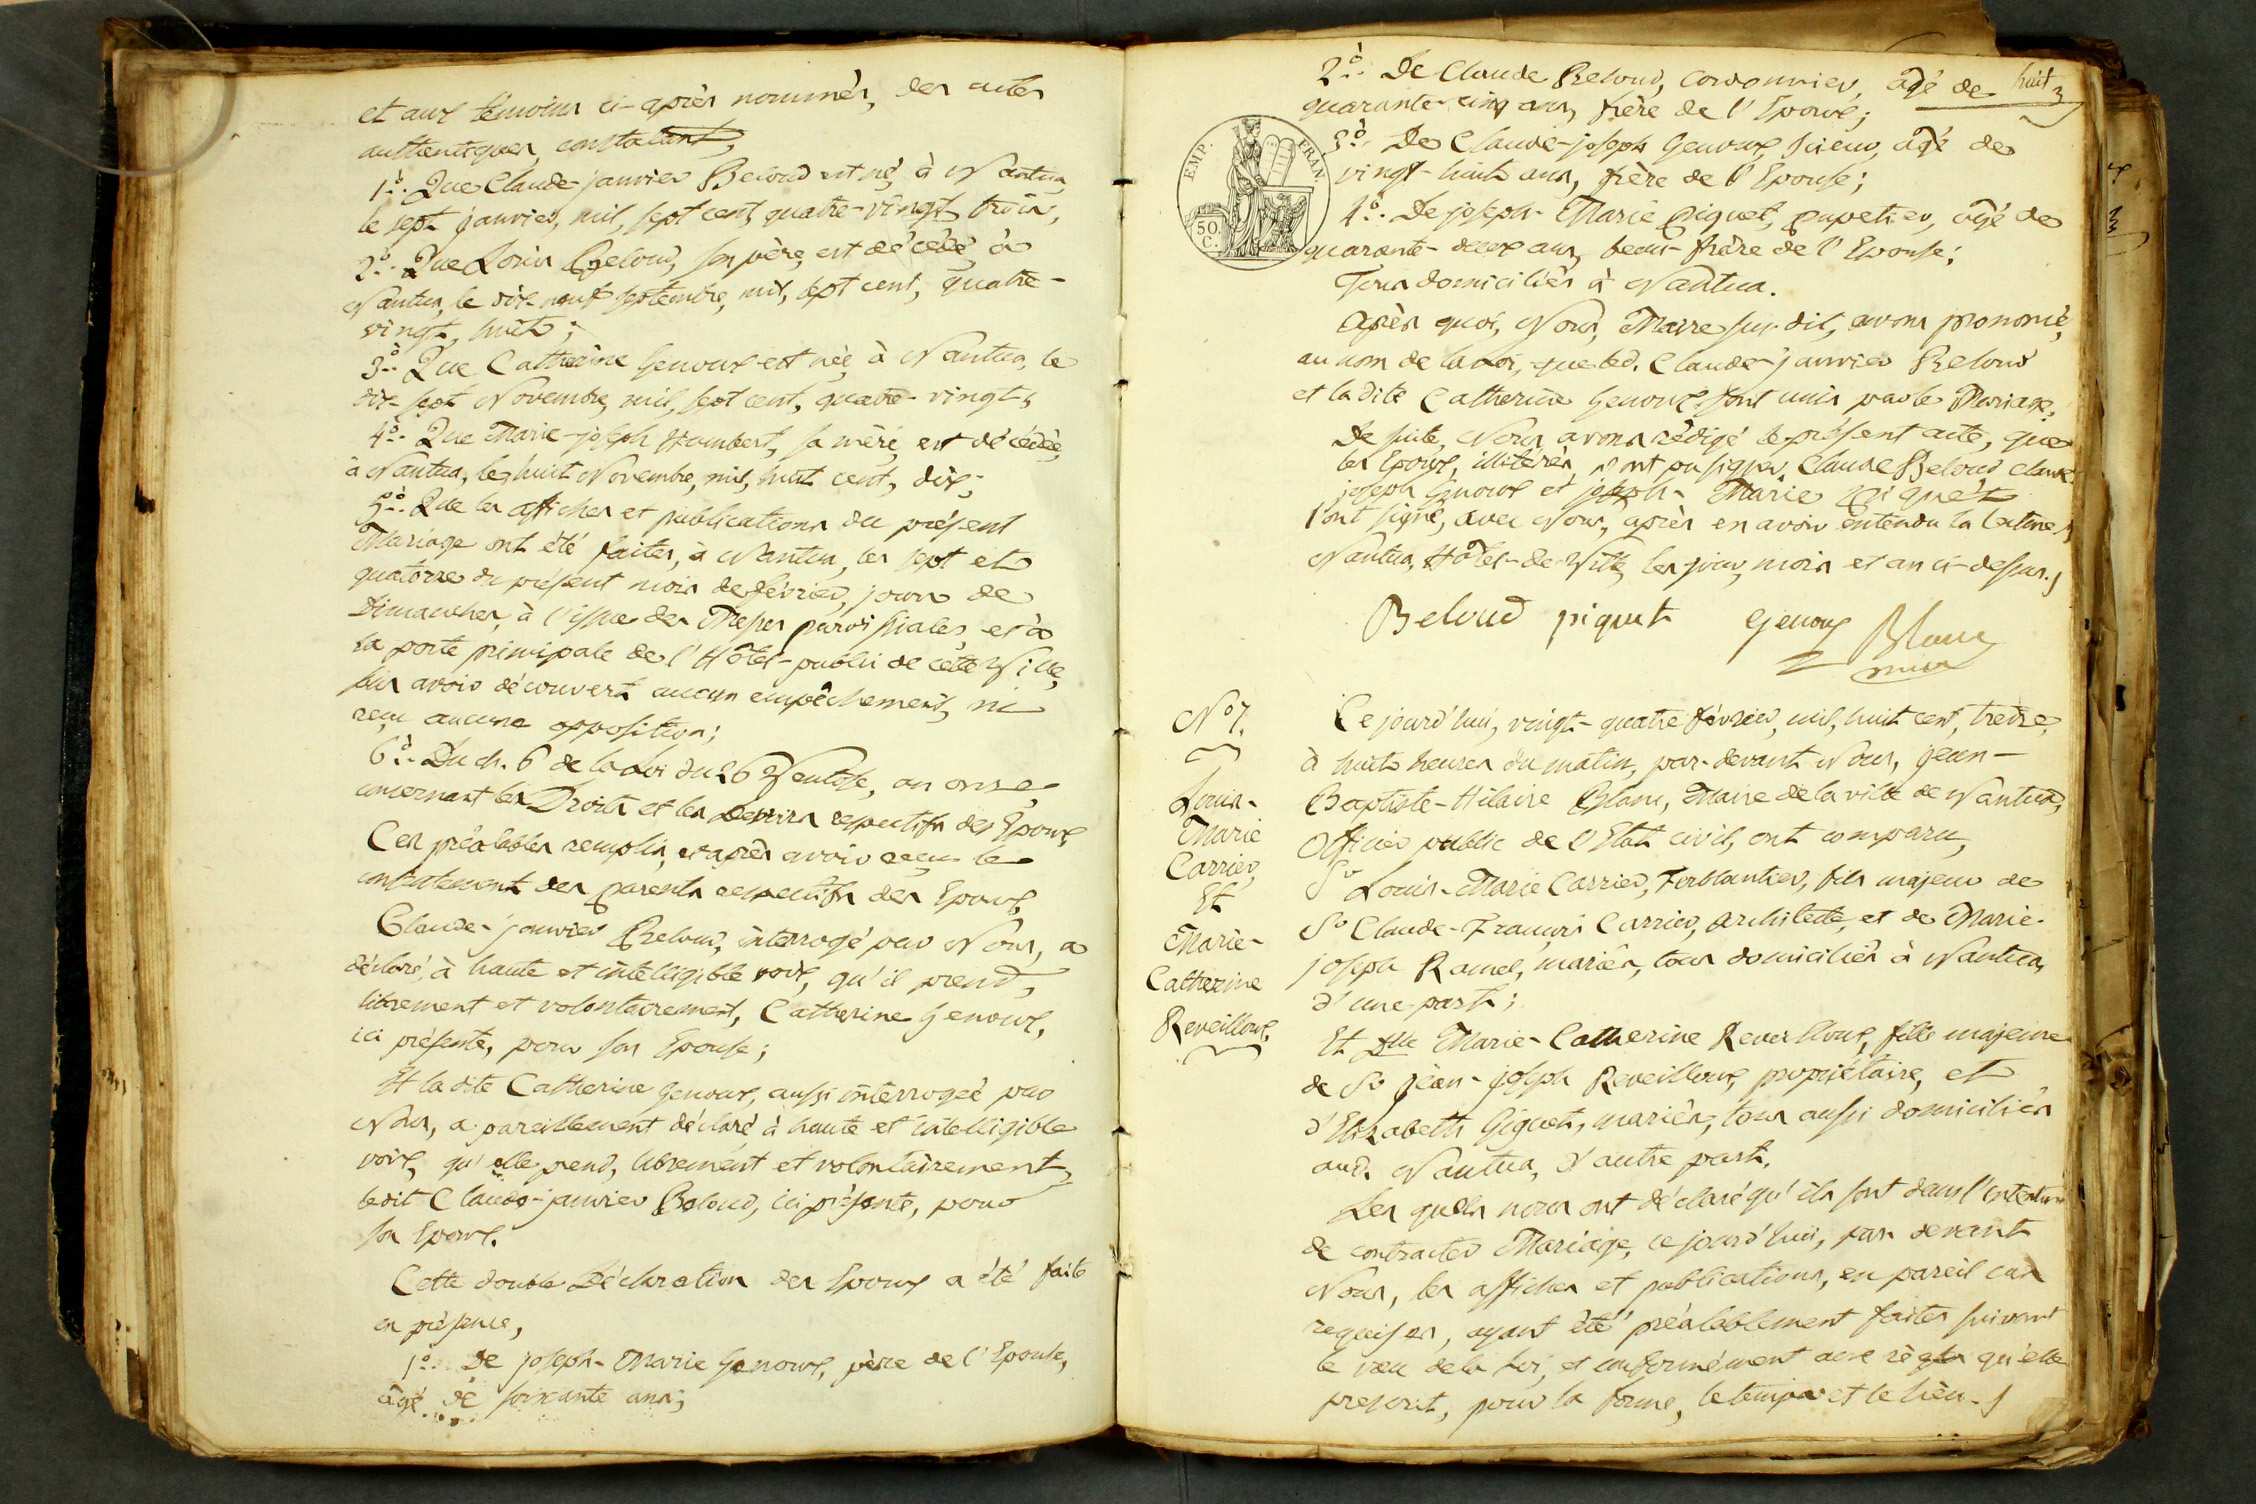 et aux témoins ci-après nommés, des actes
authentiques, constatant,
1º. Que Claude-janvier Beloud est né, à Nantua,
le sept janvier, mil, sept cent, quatre-vingt, trois,
2º. Que Loüis Beloud, son père, est décédé, à
Nantua, le dix-neuf septembre, mil, sept cent, quatre-
vingt, huit;
3º. Que Catherine Genoux est née, à Nantua, le
dix-sept Novembre, mil, sept cent, quatre-vingt;
4º. Que Marie-joseph Humbert, sa mère, est décédée,
à Nantua, le huit Novembre, mil, huit cent, dix;
5º. Que les affiches et publications du présent
Mariage ont été faites, à Nantua, les sept et
quatorze du présent mois de février, jours de
Dimanches, à l'issue des Messes paroissiales et à
la porte principale de l'Hôtel-public de cette Ville,
sans avoir découvert aucun empêchement, ni
reçu aucune opposition;
6º. Du ch. 6 de la Loi du 26 Ventôse, an onze,
concernant les Droits et les Devoirs respectifs des Epoux,
Ces préalables remplis, et après avoir reçu le
consentement des parents respectifs des Epoux,
Claude-janvier Beloud, interrogé par Nous, a
déclaré, à haute et intelligible voix, qu'il prend,
librement et volontairement, Catherine Genoux,
ici présente, pour son Epouse;
Et la dite Catherine Genoux, aussi interrogée par
Nous, a pareillement déclaré, à haute et intelligible
voix, qu'elle prend, librement et volontairement,
ledit Claude-janvier Beloud, ici présent, pour
son Epoux.
Cette double Déclaration des Epoux a été faite
en présence,
1º. De joseph-Marie Genoux, père de l'Epouse,
âgé de soixante ans;
2º. De Claude Beloud, cordonnier, âgé de huit
quarante-cinq ans, frère de l'Epoux;
EMP. FRAN.
50. C.
3º. De Claude-joseph Genoux, scieur, âgé de
vingt-huit ans, frère de l'Epouse;
4º. De joseph-Marie Piquet, papetier, âgé de
quarante-deux ans, beau-frère de l'Epouse;
Tous domiciliés à Nantua.
Après quoi, Nous, Maire sus-dit, avons prononcé,
au nom de la Loi, que led. Claude-janvier Beloud
et la dite Catherine Genoux sont unis par le Mariage,
De suite, Nous avons rédigé le présent acte, que
les Epoux, illitérés, n'ont pu signer, Claude Beloud, Claude-
joseph Genoux et joseph-Marie Piquet
l'ont signé, avec Nous, après en avoir entendu la lecture,
Nantua, Hôtel-de-Ville, les jour, mois et an ci-dessus.
Beloud piquet Genoux Blanc
maire
Nº 7.
Louis-
Marie
Carrier,
Et
Marie-
Catherine
Reveilloux,
Ce jourd'hui, vingt-quatre février, mil, huit cent, treize,
à huit heures du matin, par-devant Nous, jean-
Baptiste-Hilaire Blanc, Maire de la ville de Nantua,
Officier public de l'Etat civil, ont comparu,
Sr Louis-Marie Carrier, Ferblantier, fils majeur de
Sr Claude-François Carrier, architecte, et de Marie-
joseph Ramel, mariés, tous domiciliés à Nantua,
d'une part;
Et Dlle Marie-Catherine Reveilloux, fille majeure
de Sr jean-joseph Reveilloux, propriétaire, et
d'Elizabeth Giguet, mariés, tous aussi domiciliés
aud. Nantua, d'autre part.
Les quels nous ont déclaré qu'ils sont dans l'intention
de contracter Mariage, ce jourd'hui, par devant
Nous, les affiches et publications, en pareil cas
requises, ayant été préalablement faites suivant
le vœu de la Loi, et conformément aux règles qu'elle
prescrit, pour la forme, le temps et le lieu.